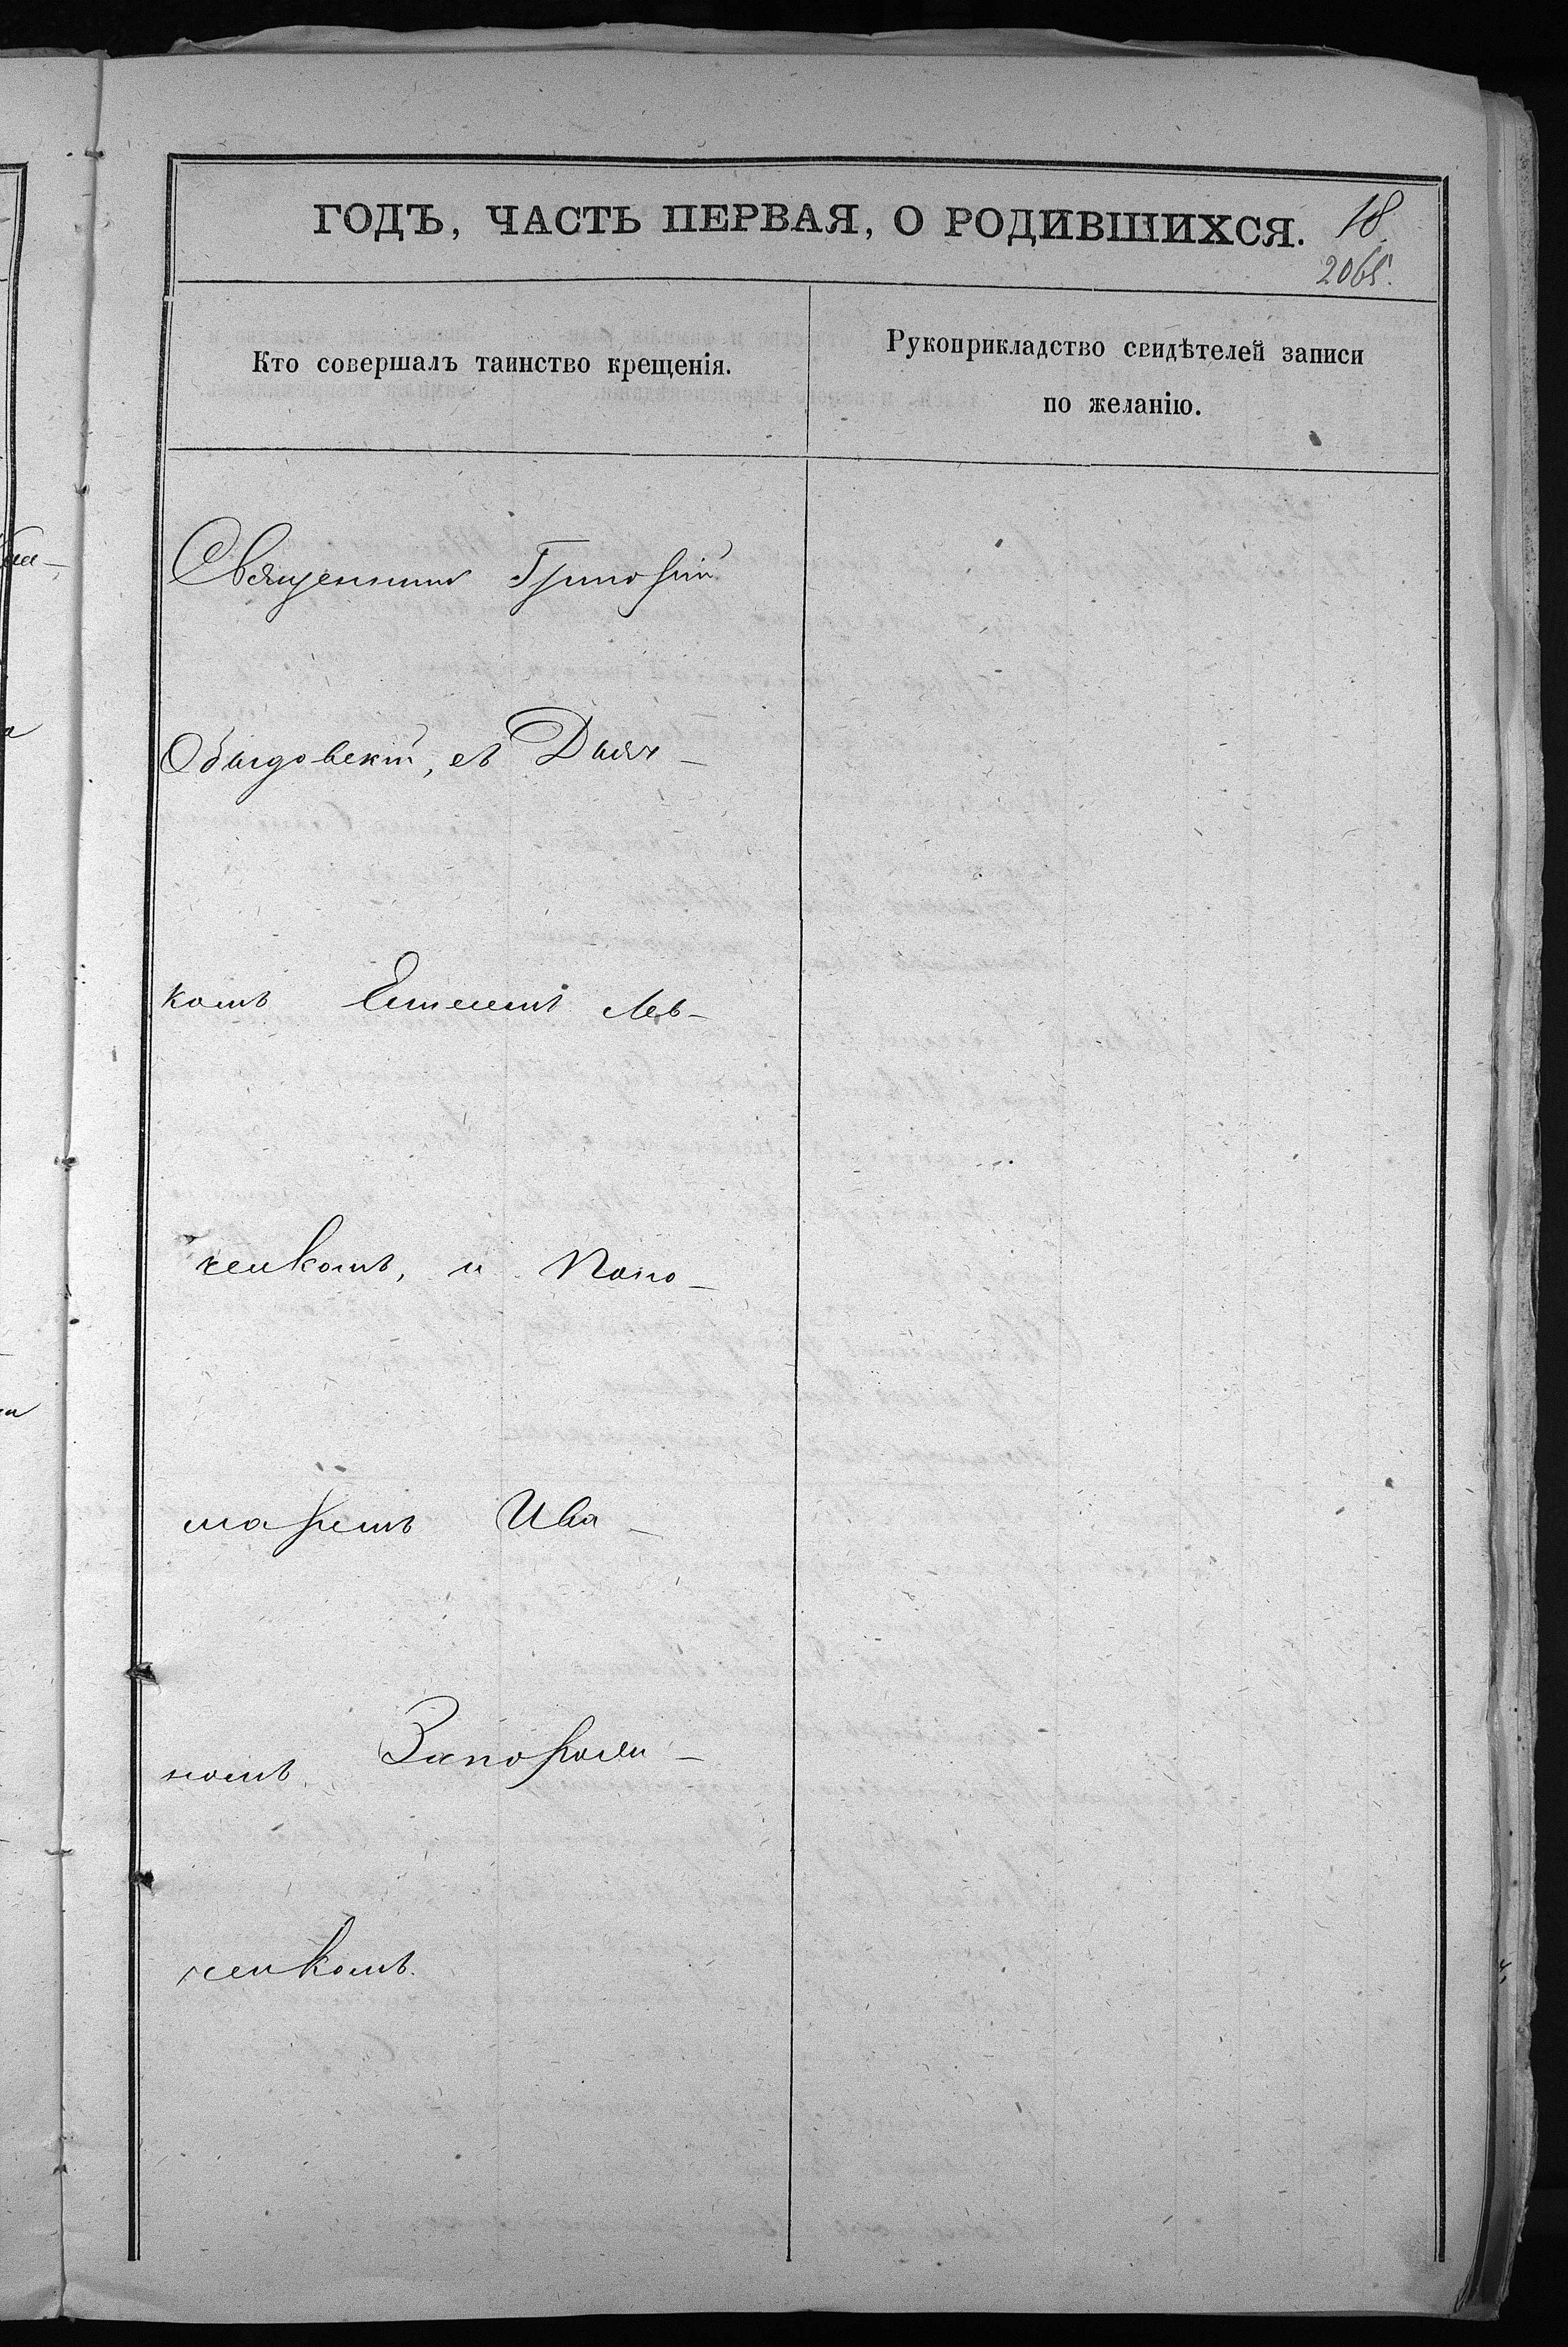 ГОДЪ, ЧАСТЬ ПЕРВАЯ, О РОДИВШИХСЯ.
18
2065.
Кто совершалъ таинство крещенія.
Рукоприкладство свидѣтелей записи
по желанію.
Священникъ Григорій
съ Дьяч-
комъ Лев-
ченкомъ, и Поно-
маремъ Ива-
номъ Запорож-
ченкомъ.